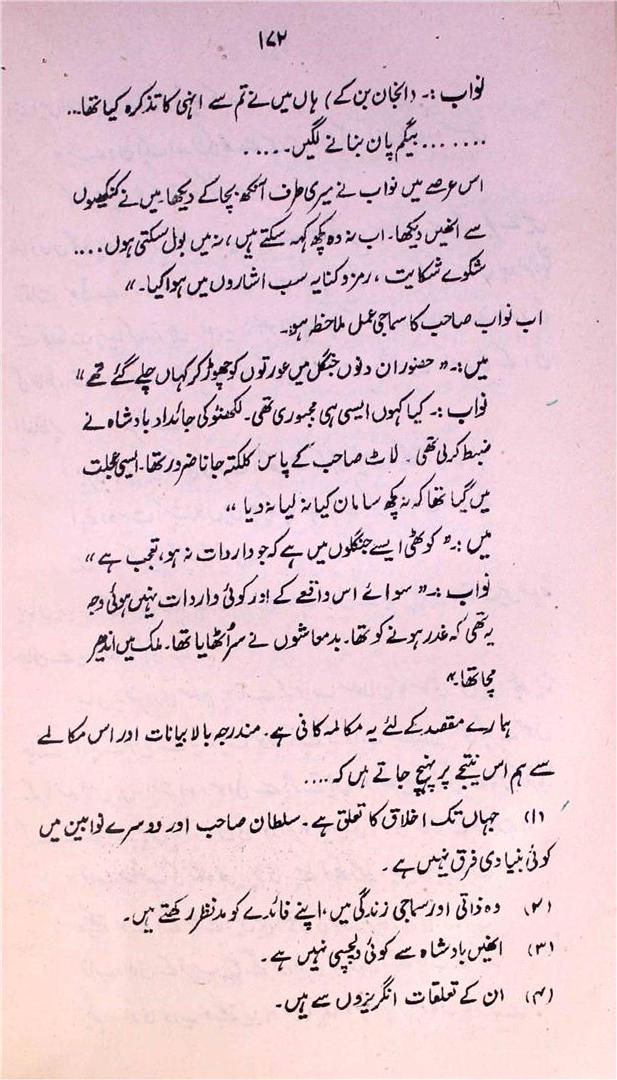 ۱۷۲
نواب :۔ (انجان بن کے) ہاں میں نے تم سے انہی کا تذکرہ کیا تھا...
....... بیگم پان بنانے لگیں۔....
اس عرصے میں نواب نے میری طرف آنکھ بچا کے دیکھا میں نے کنکھیوں
سے انھیں دیکھا۔ اب نہ وہ کچھ کہہ سکتے ہیں، نہ میں بول سکتی ہوں....
شکوے شکایت، رمز و کنایہ سب اشاروں میں ہوا کیا۔"
اب نواب صاحب کا سماجی عمل ملاحظہ ہو:۔
میں:۔ "حضور ان دنوں جنگل میں عورتوں کو چھوڑ کر کہاں چلے گئے تھے"
نواب :۔ کیا کہوں ایسی ہی مجبوری تھی۔ لکھنؤ کی جائداد بادشاہ نے
ضبط کر لی تھی۔ لاٹ صاحب کے پاس کلکتہ جانا ضرور تھا۔ ایسی عجلت
میں گیا تھا کہ نہ کچھ سامان کیا نہ لیا نہ دیا"
میں :۔ "کوٹھی ایسے جنگلوں میں ہے کہ جو واردات نہ ہو، تعجب ہے"
نواب :۔ "سوائے اس واقعے کے اور کوئی واردات نہیں ہوئی وجہ
یہ تھی کہ غدر ہونے کو تھا۔ بدمعاشوں نے سر اُٹھایا تھا۔ ملک میں اندھیر
مچا تھا۔"
ہمارے مقصد کے لئے یہ مکالمہ کافی ہے۔ مندرجہ بالا بیانات اور اس مکالمے
سے ہم اس نتیجے پر پہنچ جاتے ہیں کہ ....
(۱) جہاں تک اخلاق کا تعلق ہے۔ سلطان صاحب اور دوسرے نوابین میں
کوئی بنیادی فرق نہیں ہے۔
(۲) وہ ذاتی اور سماجی زندگی میں، اپنے فائدے کو مدنظر رکھتے ہیں۔
(۳) انھیں بادشاہ سے کوئی دلچسپی نہیں ہے۔
(۴) ان کے تعلقات انگریزوں سے ہیں۔